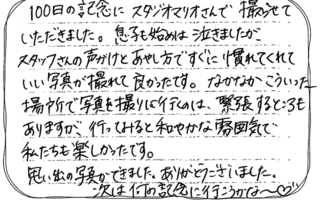 100日の記念に スタジオマリオさんで 撮らせて
いただきました。息子も始めは 泣きましたが
スタッフさんの声がけとあやし方ですぐに慣れてくれて
いい写真が撮れて良かったです。なかなかこういった
場所で写真を撮りに行くのは、緊張するところも
ありますが、行ってみると和やかな雰囲気で
私たちも楽しかったです。
思い出の写真ができました。ありがとうございました。
次は何の記念に行こうかな〜♡